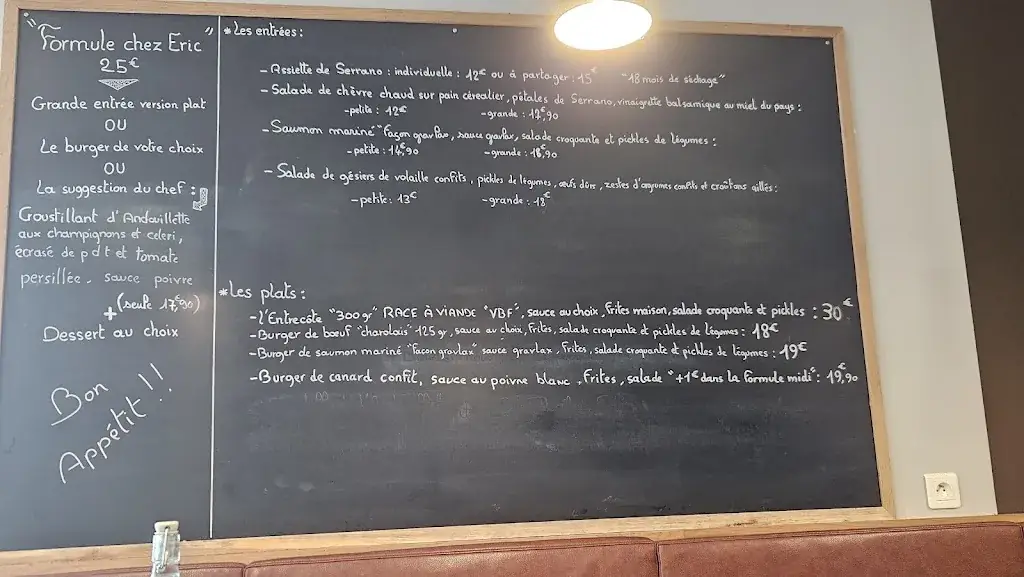 " Formule chez Eric "
25€
Grande entrée version plat
OU
Le burger de votre choix
OU
La suggestion du chef :
Croustillant d'Andouillette
aux champignons et céleri,
écrasé de pdt et tomate
persillée. sauce poivre
(seule 17,€90)
+
Dessert au choix
Bon
Appétit !!
* Les entrées :
- Assiette de Serrano : individuelle : 12€ ou à partager : 15€ "18 mois de séchage"
- Salade de chèvre chaud sur pain céréalier, pétales de Serrano, vinaigrette balsamique au miel du pays :
- petite : 12€ - grande : 17,€90
- Saumon mariné "façon gravlax, sauce gravlax, salade croquante et pickles de légumes :
- petite : 14,€90 - grande : 18,€90
- Salade de gésiers de volaille confits, pickles de légumes, œufs durs, zestes d'agrumes confits et croûtons aillés :
- petite : 13€ - grande : 18€
* Les plats :
- L'Entrecôte "300gr" RACE À VIANDE "VBF", sauce au choix, frites maison, salade croquante et pickles : 30€
- Burger de bœuf "charolais" 125gr, sauce au choix, frites, salade croquante et pickles de légumes : 18€
- Burger de saumon mariné "façon gravlax" sauce gravlax, frites, salade croquante et pickles de légumes : 19€
- Burger de canard confit, sauce au poivre blanc, frites, salade "+1€ dans la formule midi" : 19,€90